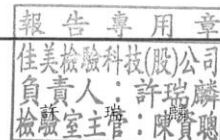 報告專用章
佳美檢驗科技(股)公司
負責人：許瑞麟
檢驗室主管：陳寶聊